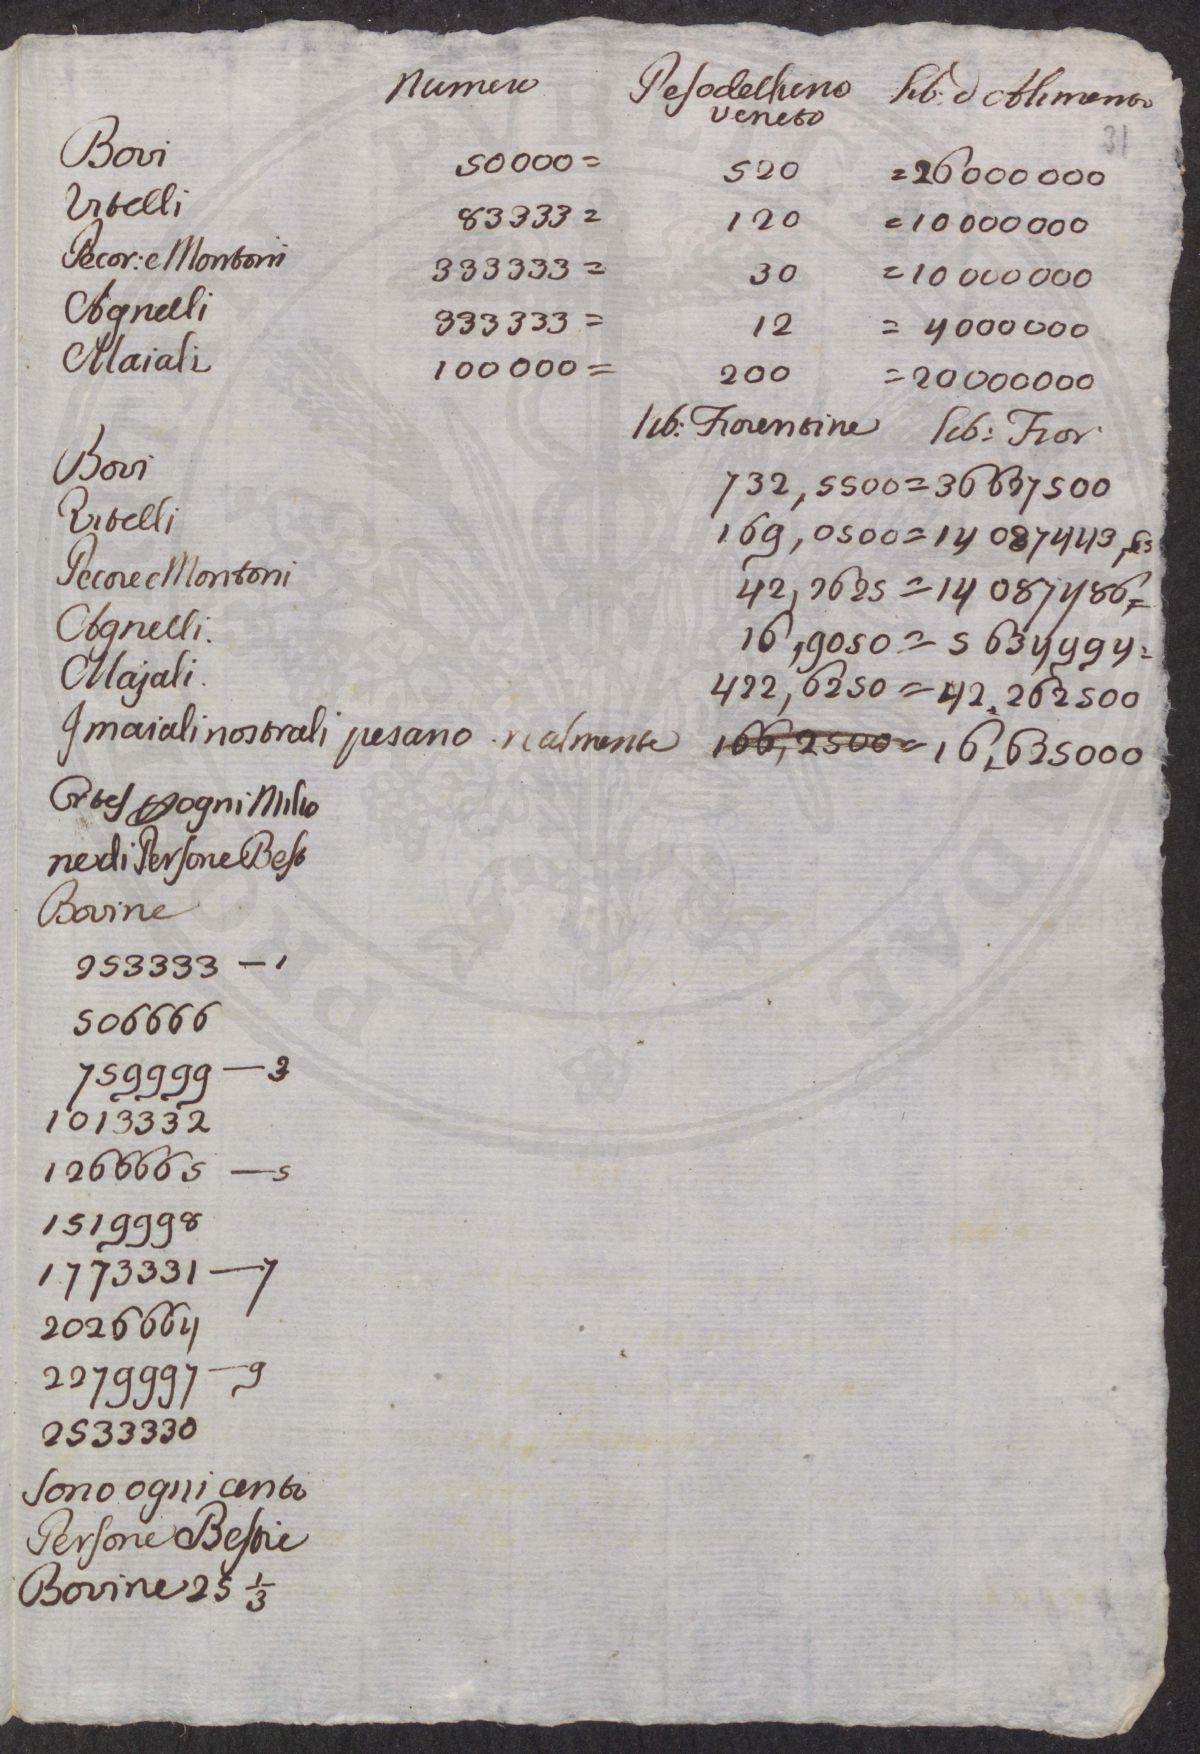 Numero Peso dell'uno veneto lib: d'Alimento
31
Bovi 50000= 520 =26000000
Vitelli 83333= 120 =10000000
Pecor: e Montoni 333333= 30 =10000000
Agnelli 333333= 12 = 4000000
Maiali 100000= 200 =20000000
lib: Fiorentine lib: Fior
Bovi 732,5500=36637500
Vitelli 169,0500=14087443,65
Pecore e Montoni 42,2625=14087486=
Agnelli. 16,9050= 5634494=
Majali. 422,6250=42.262500
I maiali nostrali pesano realmente 166,2500=16,625000
ogni Milio
ne di Persone Best
Bovine
253333 —1
506666
759999 —3
1013332
1266665 —5
1519998
1773331 —7
2026664
2279997 —9
2533330
Sono ogni cento
Persone Bestie
Bovine 25 1/3